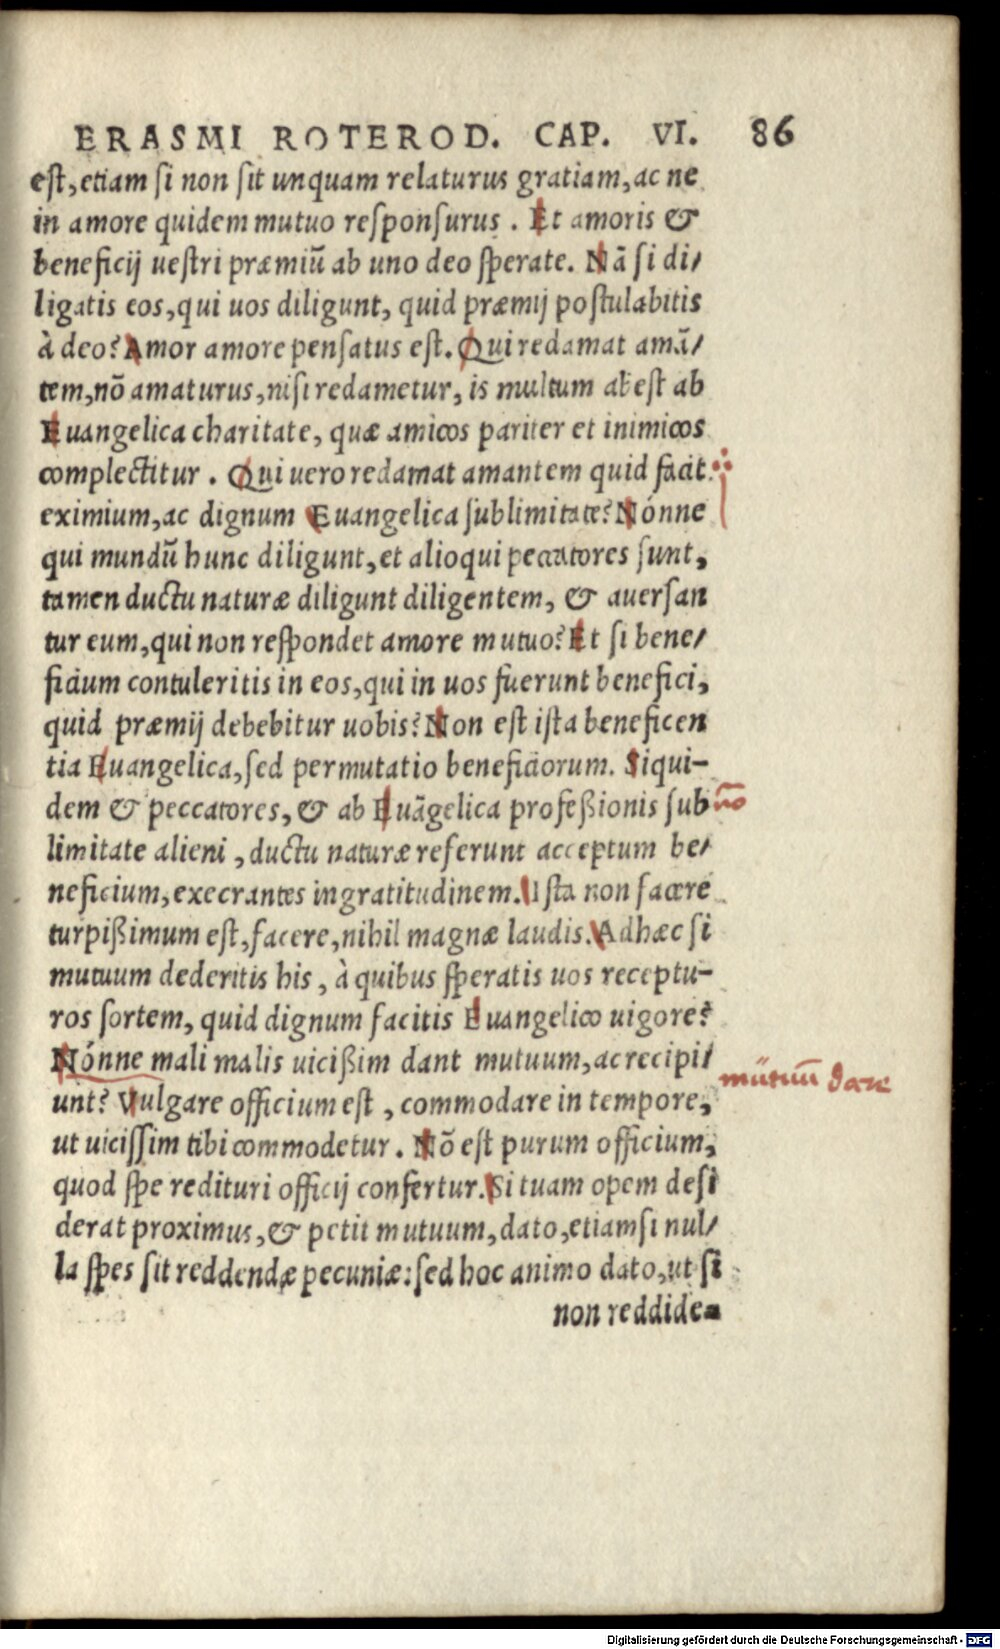 ERASMI ROTEROD. CAP. VI. 86
est, etiam si non sit unquam relaturus gratiam, ac ne
in amore quidem mutuo responsurus. Et amoris &
beneficij uestri præmiũ ab uno deo sperate. Nã si di/
ligatis eos, qui uos diligunt, quid præmij postulabitis
à deo? Amor amore pensatus est. Qui redamat amã/
tem, nõ amaturus, nisi redametur, is multum abest ab
Euangelica charitate, quæ amicos pariter et inimicos
complectitur. Qui uero redamat amantem quid facit
eximium, ac dignum Euangelica sublimitate? Nónne
qui mundũ hunc diligunt, et alioqui peccatores sunt,
tamen ductu naturæ diligunt diligentem, & auersan
tur eum, qui non respondet amore mutuo? Et si bene/
ficium contuleritis in eos, qui in uos fuerunt benefici,
quid præmij debebitur uobis? Non est ista beneficen
tia Euangelica, sed permutatio beneficiorum. Siqui-
dem & peccatores, & ab Euãgelica profeßionis sub
limitate alieni, ductu naturæ referunt acceptum be/
neficium, execrantes ingratitudinem. Ista non facere
turpißimum est, facere, nihil magnæ laudis. Adhæc si
mutuum dederitis his, à quibus speratis uos receptu-
ros sortem, quid dignum facitis Euangelico uigore?
Nónne mali malis uicißim dant mutuum, ac recipi/
mutuum dare
unt? Vulgare officium est, commodare in tempore,
ut uicissim tibi commodetur. Nõ est purum officium,
quod spe redituri officij confertur. Si tuam opem desi
derat proximus, & petit mutuum, dato, etiamsi nul/
la spes sit reddendæ pecuniæ: sed hoc animo dato, ut si
non reddide=
Digitalisierung gefördert durch die Deutsche Forschungsgemeinschaft - DFG